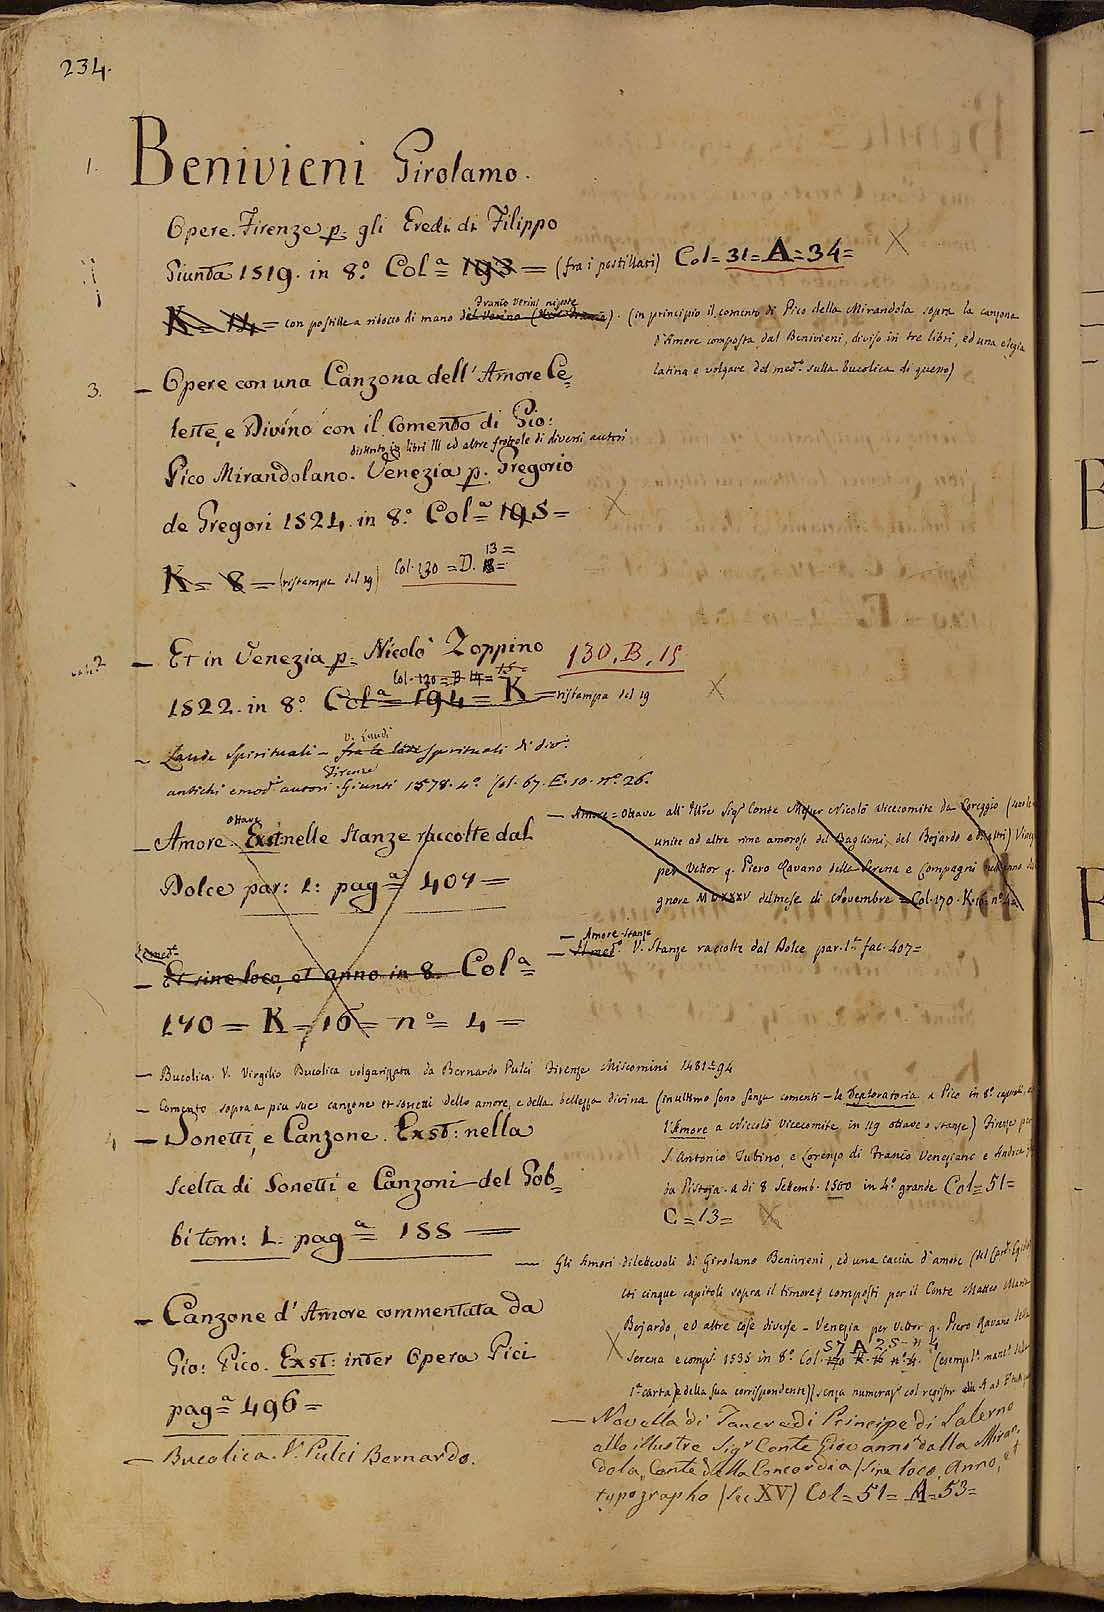 234.
1. Benivieni Girolamo.
Opere. Firenze p. gli Eredi di Filippo
Giunta 1519. in 8.° Colª= 193 = (fra i postillati) Col= 31= A= 34=
K= 14= con postille a ridosso di mano Franco Verino nipote del Verino (in principio il comento di Pico della Mirandola sopra la canzona
d'Amore composta dal Benivieni, diviso in tre libri, ed una elegia
latina e volgare del med.° sulla bucolica di questo)
3. — Opere con una Canzona dell' Amore Ce=
leste, e Divino con il Comento di Gio:
distinto in libri III ed altre frottole di diversi autori
Pico Mirandolano. Venezia p. Gregorio
de Gregori 1524. in 8.° Colª= 195=
K= 8= (ristampa del 19) Col. 130 = D. 13=
2 — Et in Venezia p. Nicolò Zoppino 130. B. 15
Col. 130 = B 14= 15=
1522. in 8.° Colª= 194= K= ristampa del 19
— Laude Spirituali — v. Laudi fra le laudi spirituali di div.i
antichi e mod.i autori. Firenze Giunti 1578. 4.° Col. 67. E. 10. n.° 26.
— Amore. Ottave Exst: nelle Stanze raccolte dal
Dolce par: 1: pagª= 407=
— Amore = Ottave all' Ill.re Sig.r Conte Messer Nicolò Vicecomite da Coreggio
unite ad altre rime amorose del Baglioni, del Bojardo e d'altri)
per Vettor q. Piero Ravano della Serena e Compagni nell'anno del
gnore MDXXXV del mese di Novembre = Col. 170. K. 16. n.° 4=
— Amore. Stanze
— Il med.° V. Stanze raccolte dal Dolce par. 1.ª fac. 407=
Le med.e
— Et sine loco, et anno in 8. Colª=
170= K= 16= n.°= 4=
— Bucolica. V. Virgilio Bucolica volgarizzata da Bernardo Pulci Firenze Miscomini 1481=94
— Comento sopra a piu sue canzone et sonetti dello amore, e della bellezza divina (in ultimo sono senza comenti — la Deploratoria a Pico in 8.°
l'Amore a Niccolò Vicecomite, in 119 ottave o stanze) Firenze per
S. Antonio Tubino, e Lorenzo di Franco Venegiano e Andrea
da Pistoja. a di 8 Settemb. 1500 in 4.° grande Col= 51=
C= 13=
4 — Sonetti, e Canzone. Exst: nella
Scelta di Sonetti e Canzoni del Gob=
bi tom: 1. pagª= 155 =
— Gli Amori dilettevoli di Girolamo Benivieni, ed una caccia d'amore (del Card. Egidio
Iti cinque capitoli sopra il timore q composti per il Conte Matteo Maria
Bojardo, ed altre cose diverse — Venezia per Vettor q. Piero Ravano della
Serena e comp.i 1535 in 8.° Col. 170 K. 16 n.° 4. 57 A 25= n 4
1.ª carta e della sua corrispondente) senza numeraz.e col registro
— Canzone d'Amore commentata da
Gio: Pico. Exst: inter Opera Pici
pagª= 496=
— Bucolica. V. Pulci Bernardo.
— Novella di Tancredi Principe di Salerno
allo illustre Sig.r Conte Giovanni dalla Miran=
dola, Conte della Concordia (sine loco, Anno, et
typographo (Sec XV) Col= 51= A= 53=